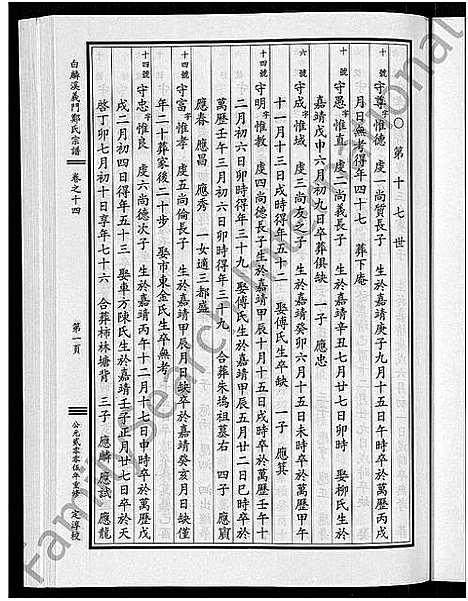 ○第十七世
十號 守尊字惟德 虔一尚質長子 生於嘉靖庚子九月十五日午時卒於萬歷丙戌
月日無考得年四十七 葬下庵
十一號 守愚字惟直 虔二尚義長子 生於嘉靖辛丑七月廿七日卯時 娶柳氏生於
嘉靖戊申六月初九日卒葬俱缺 一子 應忠
六號 守成字惟城 虔三尚友之子 生於嘉靖癸卯六月十五日未時卒於萬歷甲午
十一月十三日戌時得年五十二 娶傅氏生卒缺 一子 應箕
十四號 守明字惟教 虔四尚德長子生於嘉靖甲辰十月十五日戌時卒於萬歷壬午十
二月初六日卯時得年三十九 娶傅氏生於嘉靖甲辰五月廿二日巳時卒於
萬歷壬午三月初六日卯時得年三十九 合葬朱塢祖墓右 四子 應寅
應春 應昌 應秀 一女適三都盛
十四號 守富字惟孝 虔五尚倫長子 生於嘉靖甲辰月日缺卒於嘉靖癸亥月日缺僅
年二十葬家後二十步 娶市東金氏生卒無考
十四號 守忠字惟良 虔六尚德次子 生於嘉靖丙午十二月十七日申時卒於萬歷戊
戌二月初四日得年五十三 娶車方陳氏生於嘉靖壬子正月廿七日卒於天
啓丁卯七月初十日享年七十六 合葬柿林塘背 三子 應麟 應試 應龍
白麟溪義門鄭氏宗譜
卷之十四
第一頁
公元貳零零伍年重修 定淳校
familysearch international